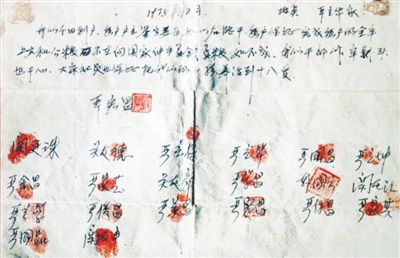 1978年12月 地点 严立华家
我们分田到户，每户户主签字盖章，如以后能干，每户保证完成每户的全年
上交和公粮，不在向国家伸手要钱要粮。如不成，我们干部作牢刹头
也干心，大家社员也保证把我们的小孩养活到十八岁
严宏昌
关廷珠 关友德 严立符 严立华 严国昌 严立坤
严金昌 严家芝 关友章 严学昌 韩国云 关友江
严立学 严俊昌 严美昌 严宏昌 严付昌 严家其
严国品 关友申